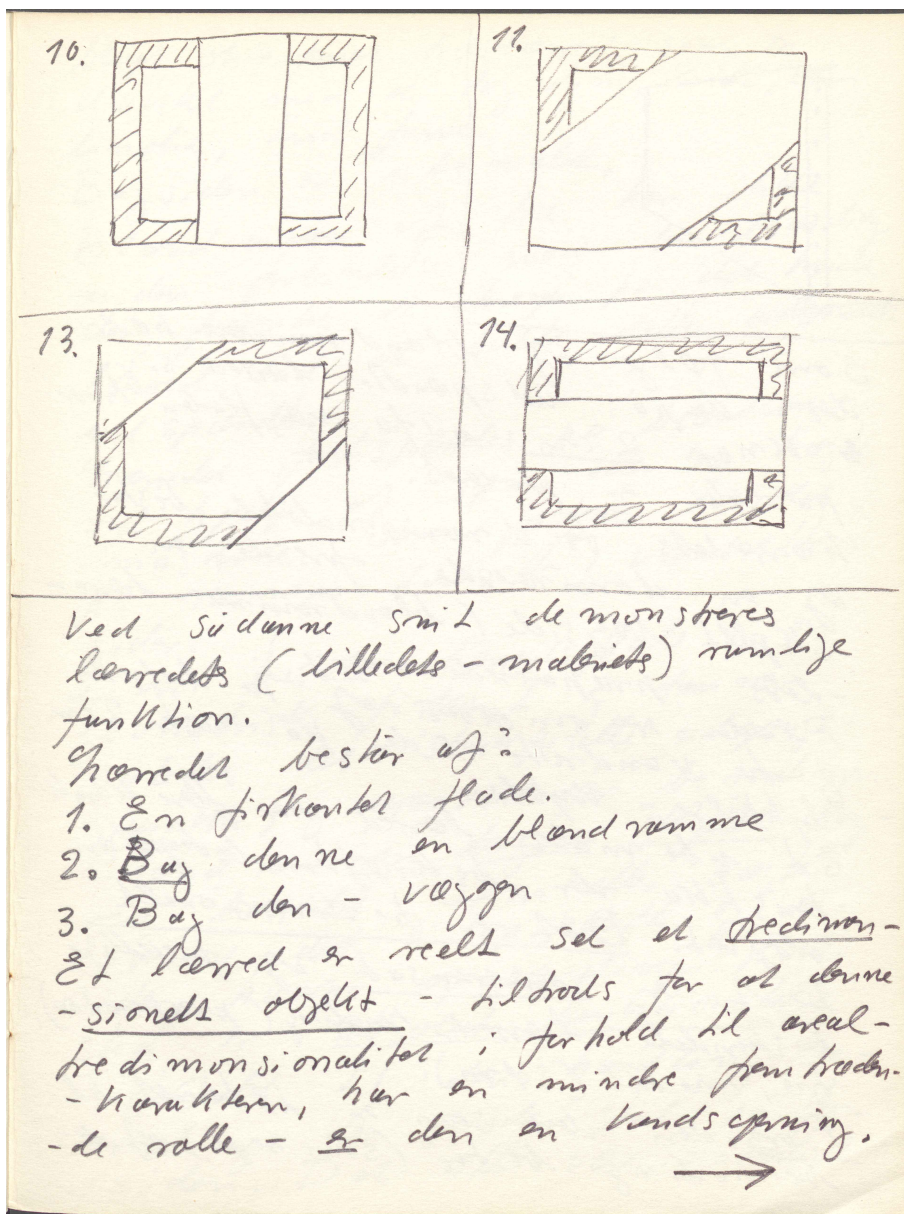 10.
11.
13.
14.
Ved sådanne snit demonstreres
lærredets (billedets - maleriets) rumlige
funktion.
Lærredet består af:
1. En firkantet flade.
2. Bag denne en blændramme
3. Bag den - væggen
Et lærred er reelt set et tredimen-
-sionelt objekt - tiltrods for at denne
tredimensionalitet i forhold til areal-
-karakteren, har en mindre fremtræden-
-de rolle - er den en kendsgerning.